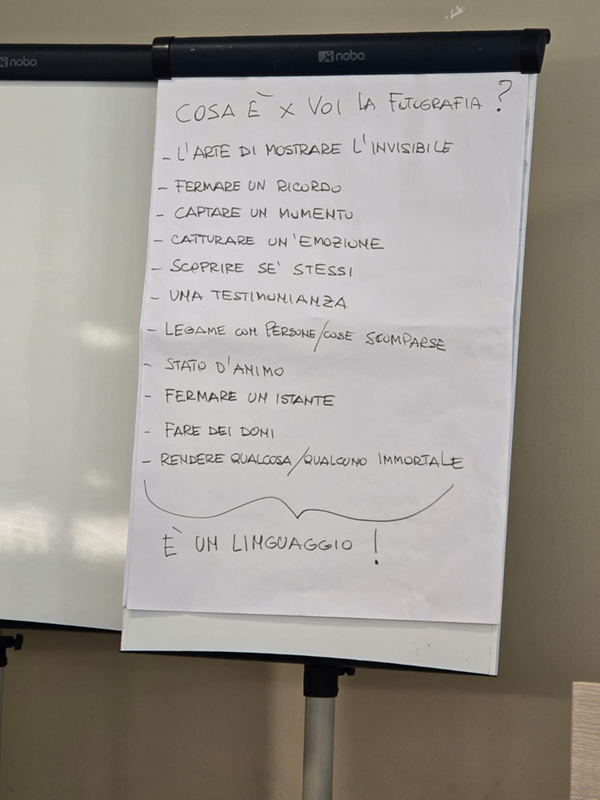 nobo
nobo
COSA È X VOI LA FOTOGRAFIA ?
- L'ARTE DI MOSTRARE L'INVISIBILE
- FERMARE UN RICORDO
- CAPTARE UN MOMENTO
- CATTURARE UN'EMOZIONE
- SCOPRIRE SE' STESSI
- UNA TESTIMONIANZA
- LEGAME CON PERSONE/COSE SCOMPARSE
- STATO D'ANIMO
- FERMARE UN ISTANTE
- FARE DEI DONI
- RENDERE QUALCOSA/QUALCUNO IMMORTALE
È UN LINGUAGGIO !